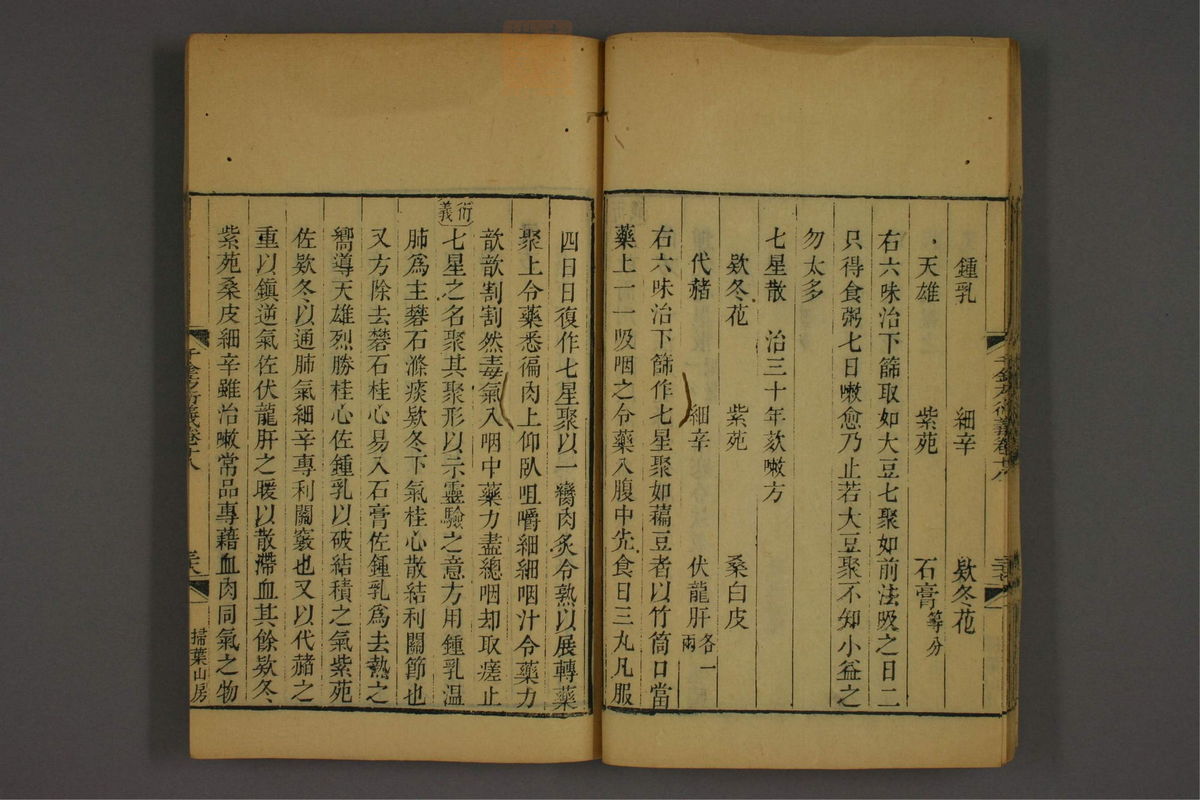 鍾乳 細辛 欵冬花
天雄 紫苑 石膏等分
右六味治下篩取如大豆七聚如前法吸之日二
只得食粥七日嗽愈乃止若大豆聚不知小益之
勿太多
七星散 治三十年欬嗽方
欵冬花 紫苑 桑白皮
代赭 細辛 伏龍肝各一兩
右六味治下篩作七星聚如藊豆者以竹筒口當
藥上一一吸咽之令藥入腹中先食日三丸凡服
四日日復作七星聚以一臠肉炙令熟以展轉藥
聚上令藥悉徧肉上仰臥咀嚼細細咽汁令藥力
歆歆割割然毒氣入咽中藥力盡總咽却取瘥止
衍義
七星之名聚其聚形以示靈驗之意方用鍾乳温
肺爲主礬石滌痰欵冬下氣桂心散結利關節也
又方除去礬石桂心易入石膏佐鍾乳爲去熱之
嚮導天雄烈勝桂心佐鍾乳以破結積之氣紫苑
佐欵冬以通肺氣細辛專利關竅也又以代赭之
重以鎮逆氣佐伏龍肝之暖以散滯血其餘欵冬
紫苑桑皮細辛雖治嗽常品專藉血肉同氣之物
千金方衍義卷十八
掃葉山房